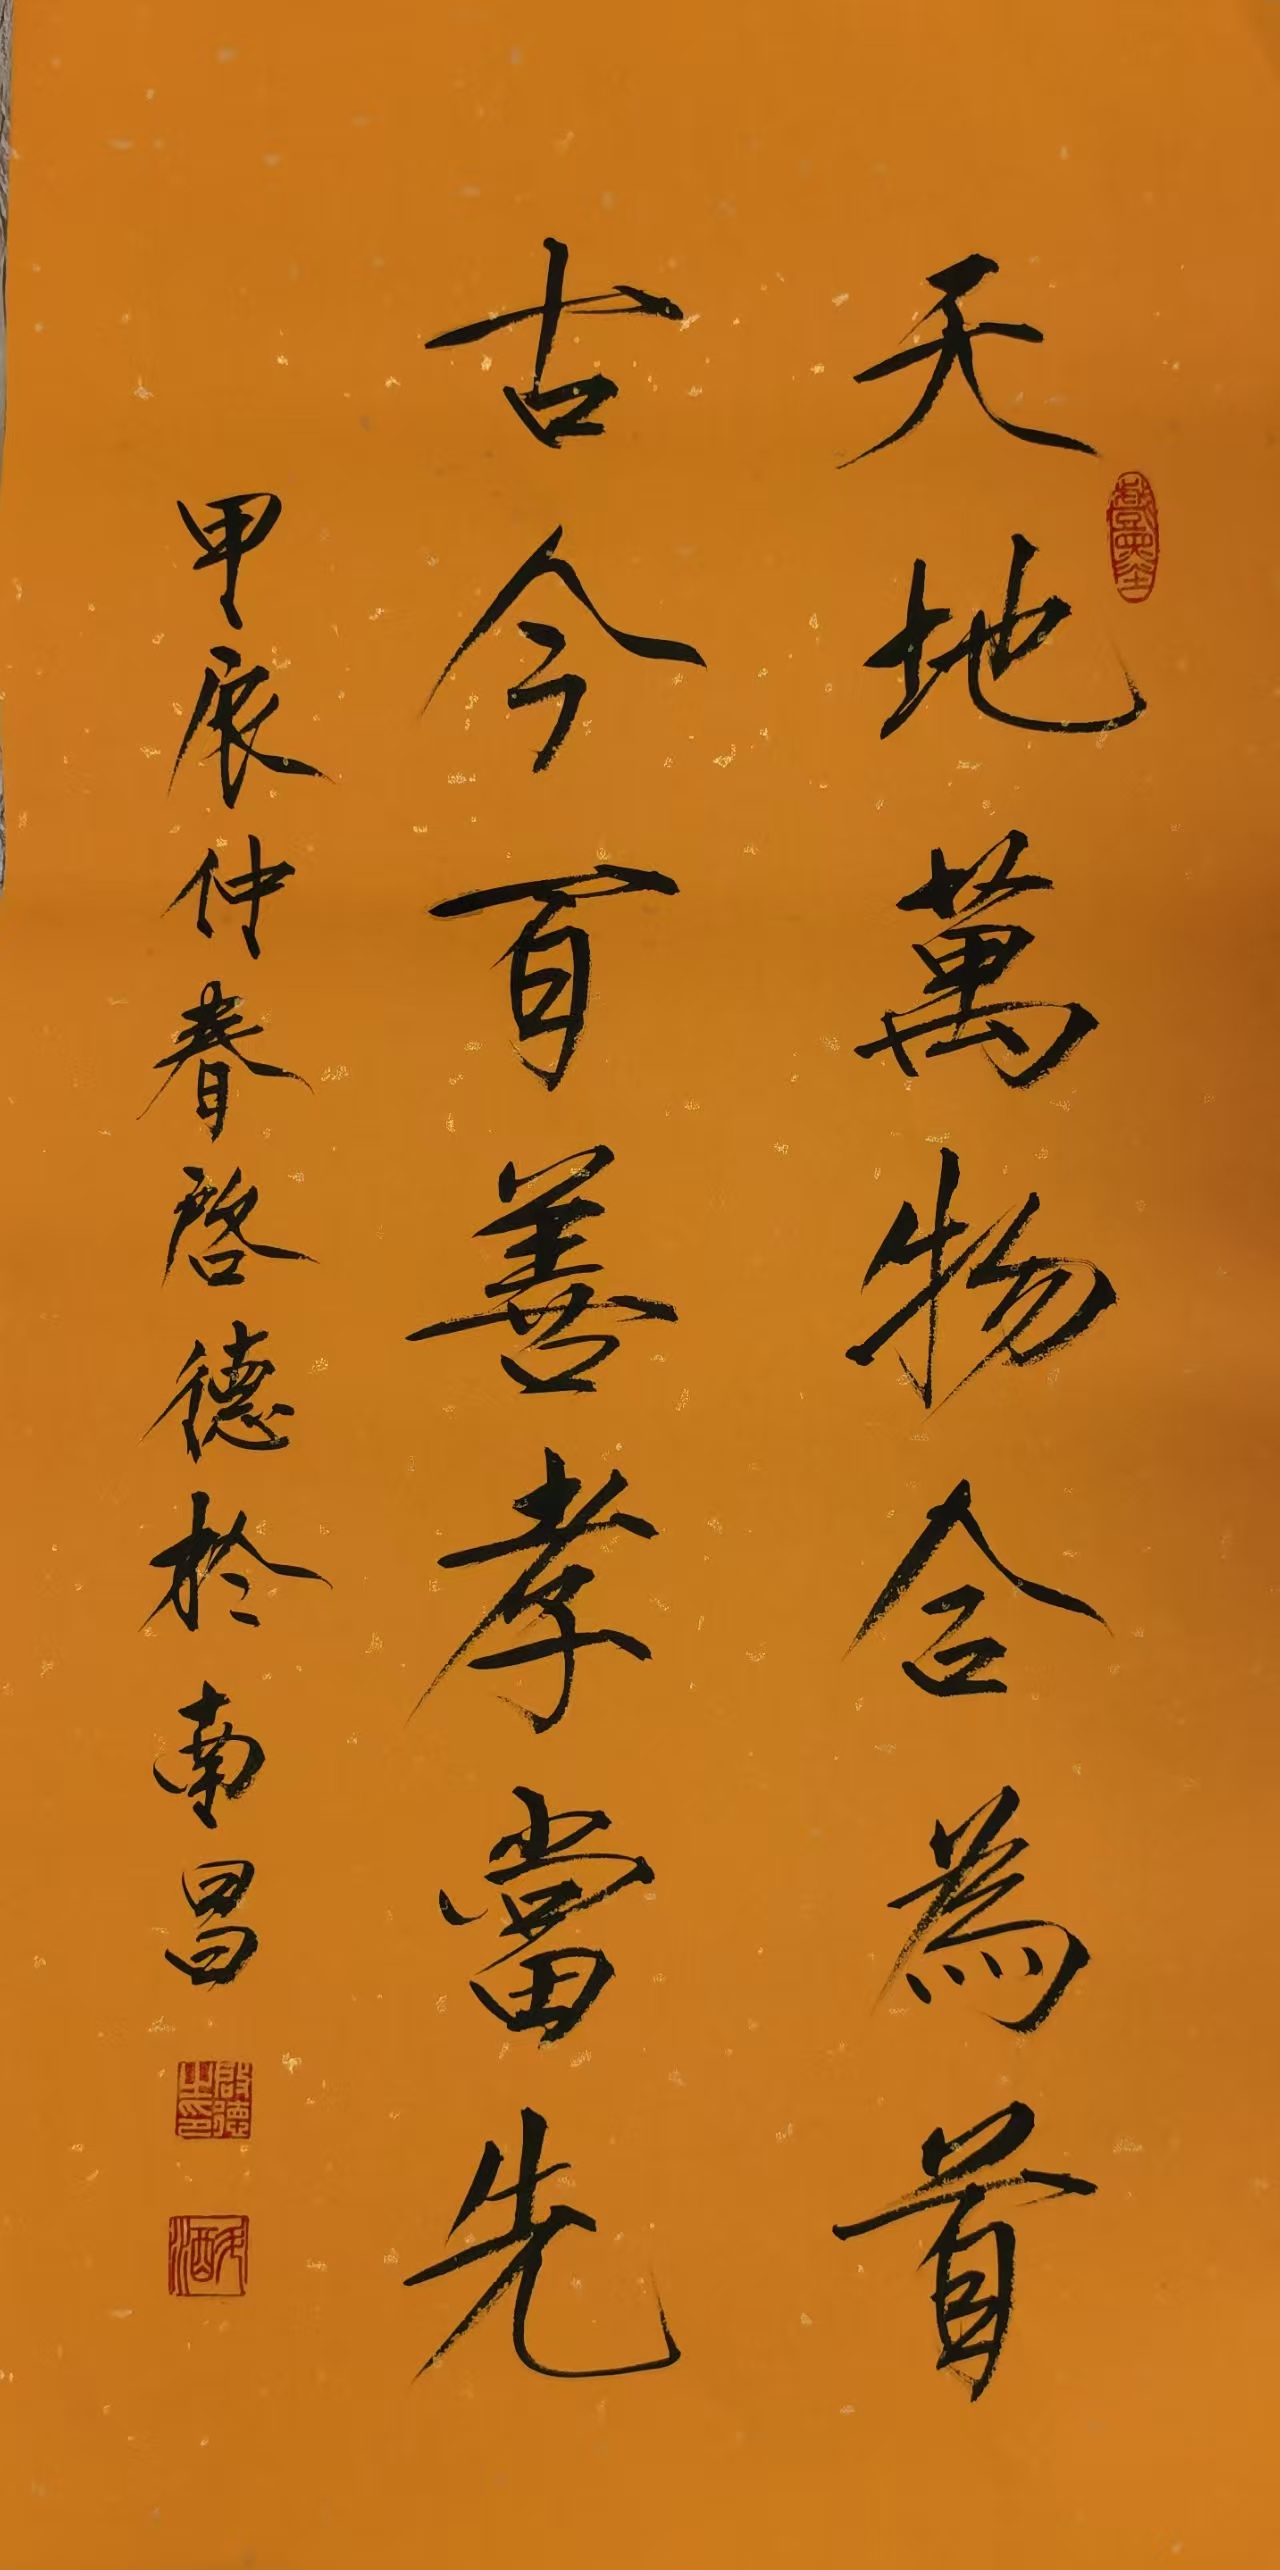 天地萬物合為首
古今百善孝當先
甲辰仲春啓德於南昌
啟德之印